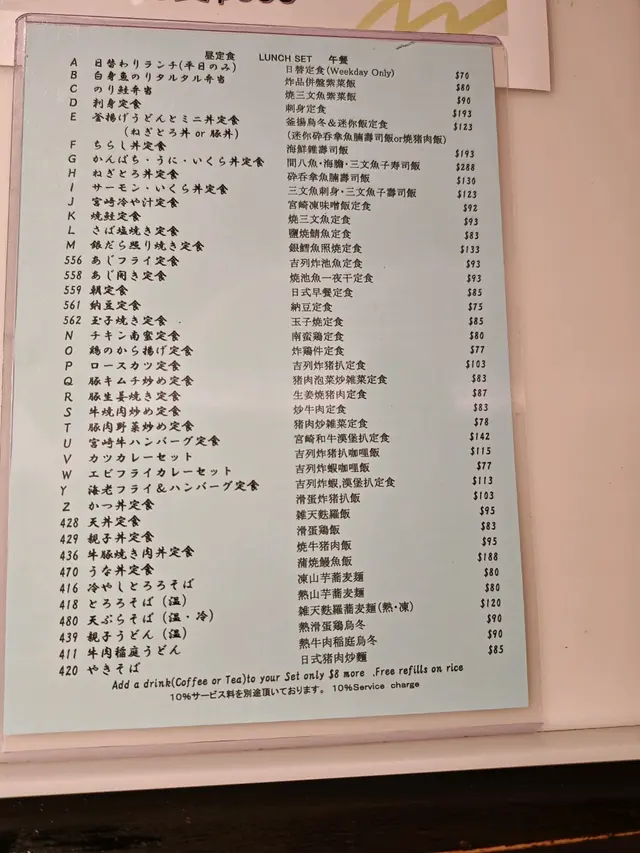 昼定食 LUNCH SET 午餐
A 日替わりランチ(平日のみ) 日替定食(Weekday Only) $70
B 白身魚のりタルタル弁当 炸品併盤紫菜飯 $80
C のり鮭弁当 燒三文魚紫菜飯 $90
D 刺身定食 刺身定食 $193
E 釜揚げうどんとミニ丼定食 釜揚烏冬&迷你飯定食 $123
(ねぎとろ丼 or 豚丼) (迷你砕吞拿魚腩壽司飯or燒猪肉飯)
F ちらし丼定食 海鮮雜壽司飯 $193
G かんぱち・うに・いくら丼定食 間八魚・海膽・三文魚子寿司飯 $288
H ねぎとろ丼定食 砕吞拿魚腩壽司飯 $130
I サーモン・いくら丼定食 三文魚刺身・三文魚子壽司飯 $123
J 宮崎冷や汁定食 宮崎凍味噌飯定食 $92
K 焼鮭定食 燒三文魚定食 $93
L さば塩焼き定食 鹽燒鯖魚定食 $83
M 銀だら照り焼き定食 銀鱈魚照燒定食 $133
556 あじフライ定食 吉列炸池魚定食 $93
558 あじ開き定食 燒池魚一夜干定食 $93
559 朝定食 日式早餐定食 $85
561 納豆定食 納豆定食 $75
562 玉子焼き定食 玉子燒定食 $85
N チキン南蛮定食 南蛮鶏定食 $80
O 鶏のから揚げ定食 炸鶏件定食 $77
P ロースカツ定食 吉列炸猪扒定食 $103
Q 豚キムチ炒め定食 猪肉泡菜炒雑菜定食 $83
R 豚生姜焼き定食 生姜燒猪肉定食 $87
S 牛焼肉炒め定食 炒牛肉定食 $83
T 豚肉野菜炒め定食 猪肉炒雑菜定食 $78
U 宮崎牛ハンバーグ定食 宮崎和牛漢堡扒定食 $142
V カツカレーセット 吉列炸猪扒咖哩飯 $115
W エビフライカレーセット 吉列炸蝦咖哩飯 $77
Y 海老フライ&ハンバーグ定食 吉列炸蝦,漢堡扒定食 $113
Z かつ丼定食 滑蛋炸猪扒飯 $103
428 天丼定食 雑天麩羅飯 $95
429 親子丼定食 滑蛋鶏飯 $83
436 牛豚焼き肉丼定食 燒牛猪肉飯 $95
470 うな丼定食 蒲燒鰻魚飯 $188
416 冷やしとろろそば 凍山芋蕎麦麺 $80
418 とろろそば (温) 熱山芋蕎麦麺 $80
480 天ぷらそば (温・冷) 雑天麩羅蕎麦麺(熱・凍) $120
439 親子うどん (温) 熱滑蛋鶏烏冬 $90
411 牛肉稲庭うどん 熱牛肉稲庭烏冬 $90
420 やきそば 日式猪肉炒麺 $85
Add a drink(Coffee or Tea)to your Set only $8 more .Free refills on rice
10%サービス料を別途頂いております。 10%Service charge